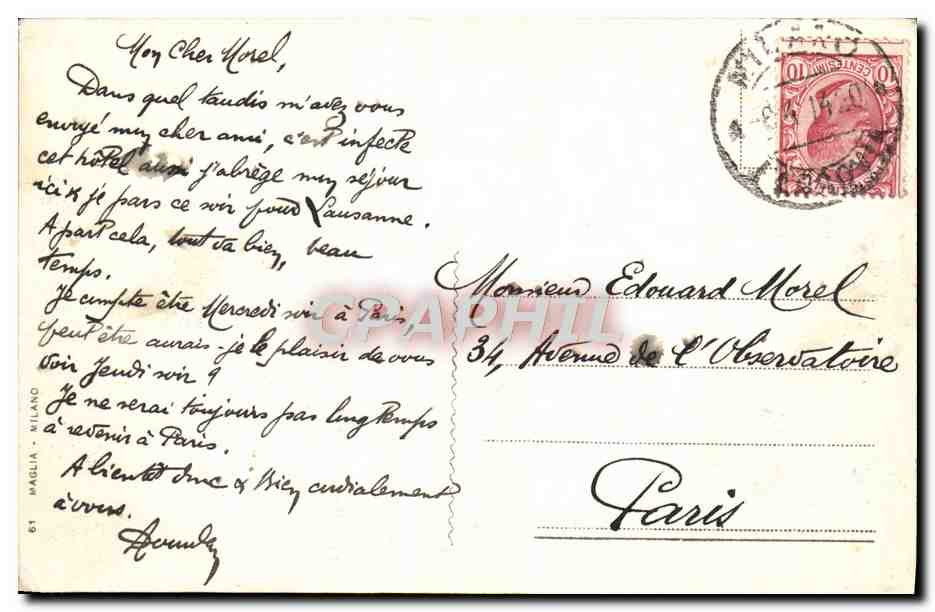 Mon Cher Morel,
Dans quel taudis m'avez vous
envoyé mon cher ami, c'est infecte
cet hôtel aussi j'abrège mon séjour
ici & je pars ce soir pour Lausanne.
A part cela, tout va bien, beau
temps.
Je compte être Mercredi soir à Paris,
peut être aurais-je le plaisir de vous
voir Jeudi soir ?
Je ne serai toujours pas longtemps
à revenir à Paris.
A bientôt donc & Bien cordialement
à vous.
Monsieur Edouard Morel
34, Avenue de l'Observatoire
Paris
61 MAGLIA - MILANO
MILANO
CENTESIMI
10 10
CPARAMA